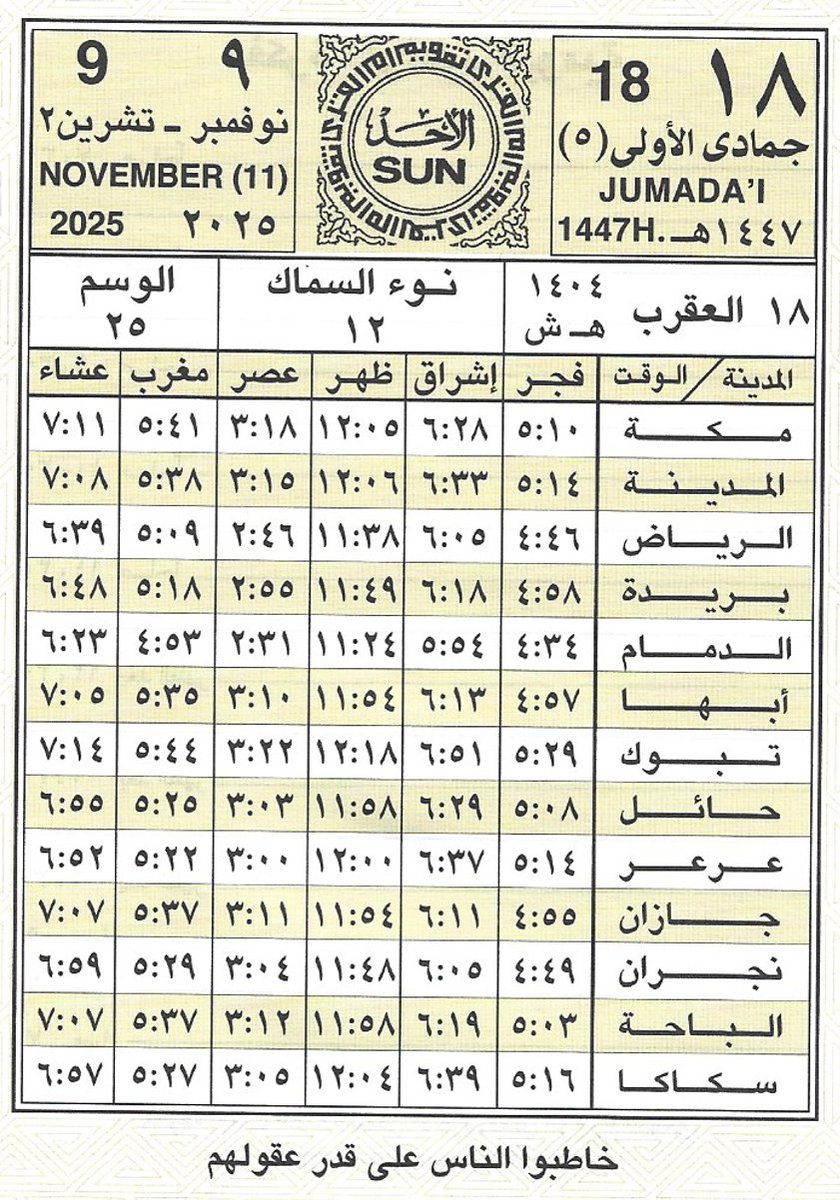 ١٨ 18
جمادى الأولى (٥)
JUMADA'I
١٤٤٧هـ 1447H.
الأحد
SUN
9 ٩
نوفمبر - تشرين٢
NOVEMBER (11)
2025 ٢٠٢٥
١٨ العقرب ١٤٠٤ هـ ش
نوء السماك ١٢
الوسم ٢٥
المدينة / الوقت فجر إشراق ظهر عصر مغرب عشاء
مكة ٥:١٠ ٦:٢٨ ١٢:٠٥ ٣:١٨ ٥:٤١ ٧:١١
المدينة ٥:١٤ ٦:٣٣ ١٢:٠٦ ٣:١٥ ٥:٣٨ ٧:٠٨
الرياض ٤:٤٦ ٦:٠٥ ١١:٣٨ ٢:٤٦ ٥:٠٩ ٦:٣٩
بريدة ٤:٥٨ ٦:١٨ ١١:٤٩ ٢:٥٥ ٥:١٨ ٦:٤٨
الدمام ٤:٣٤ ٥:٥٤ ١١:٢٤ ٢:٣١ ٤:٥٣ ٦:٢٣
أبها ٤:٥٧ ٦:١٣ ١١:٥٤ ٣:١٠ ٥:٣٥ ٧:٠٥
تبوك ٥:٢٩ ٦:٥١ ١٢:١٨ ٣:٢٢ ٥:٤٤ ٧:١٤
حائل ٥:٠٨ ٦:٢٩ ١١:٥٨ ٣:٠٣ ٥:٢٥ ٦:٥٥
عرعر ٥:١٤ ٦:٣٧ ١٢:٠٠ ٣:٠٠ ٥:٢٢ ٦:٥٢
جازان ٤:٥٥ ٦:١١ ١١:٥٤ ٣:١١ ٥:٣٧ ٧:٠٧
نجران ٤:٤٩ ٦:٠٥ ١١:٤٨ ٣:٠٤ ٥:٢٩ ٦:٥٩
الباحة ٥:٠٣ ٦:١٩ ١١:٥٨ ٣:١٢ ٥:٣٧ ٧:٠٧
سكاكا ٥:١٦ ٦:٣٩ ١٢:٠٤ ٣:٠٥ ٥:٢٧ ٦:٥٧
خاطبوا الناس على قدر عقولهم